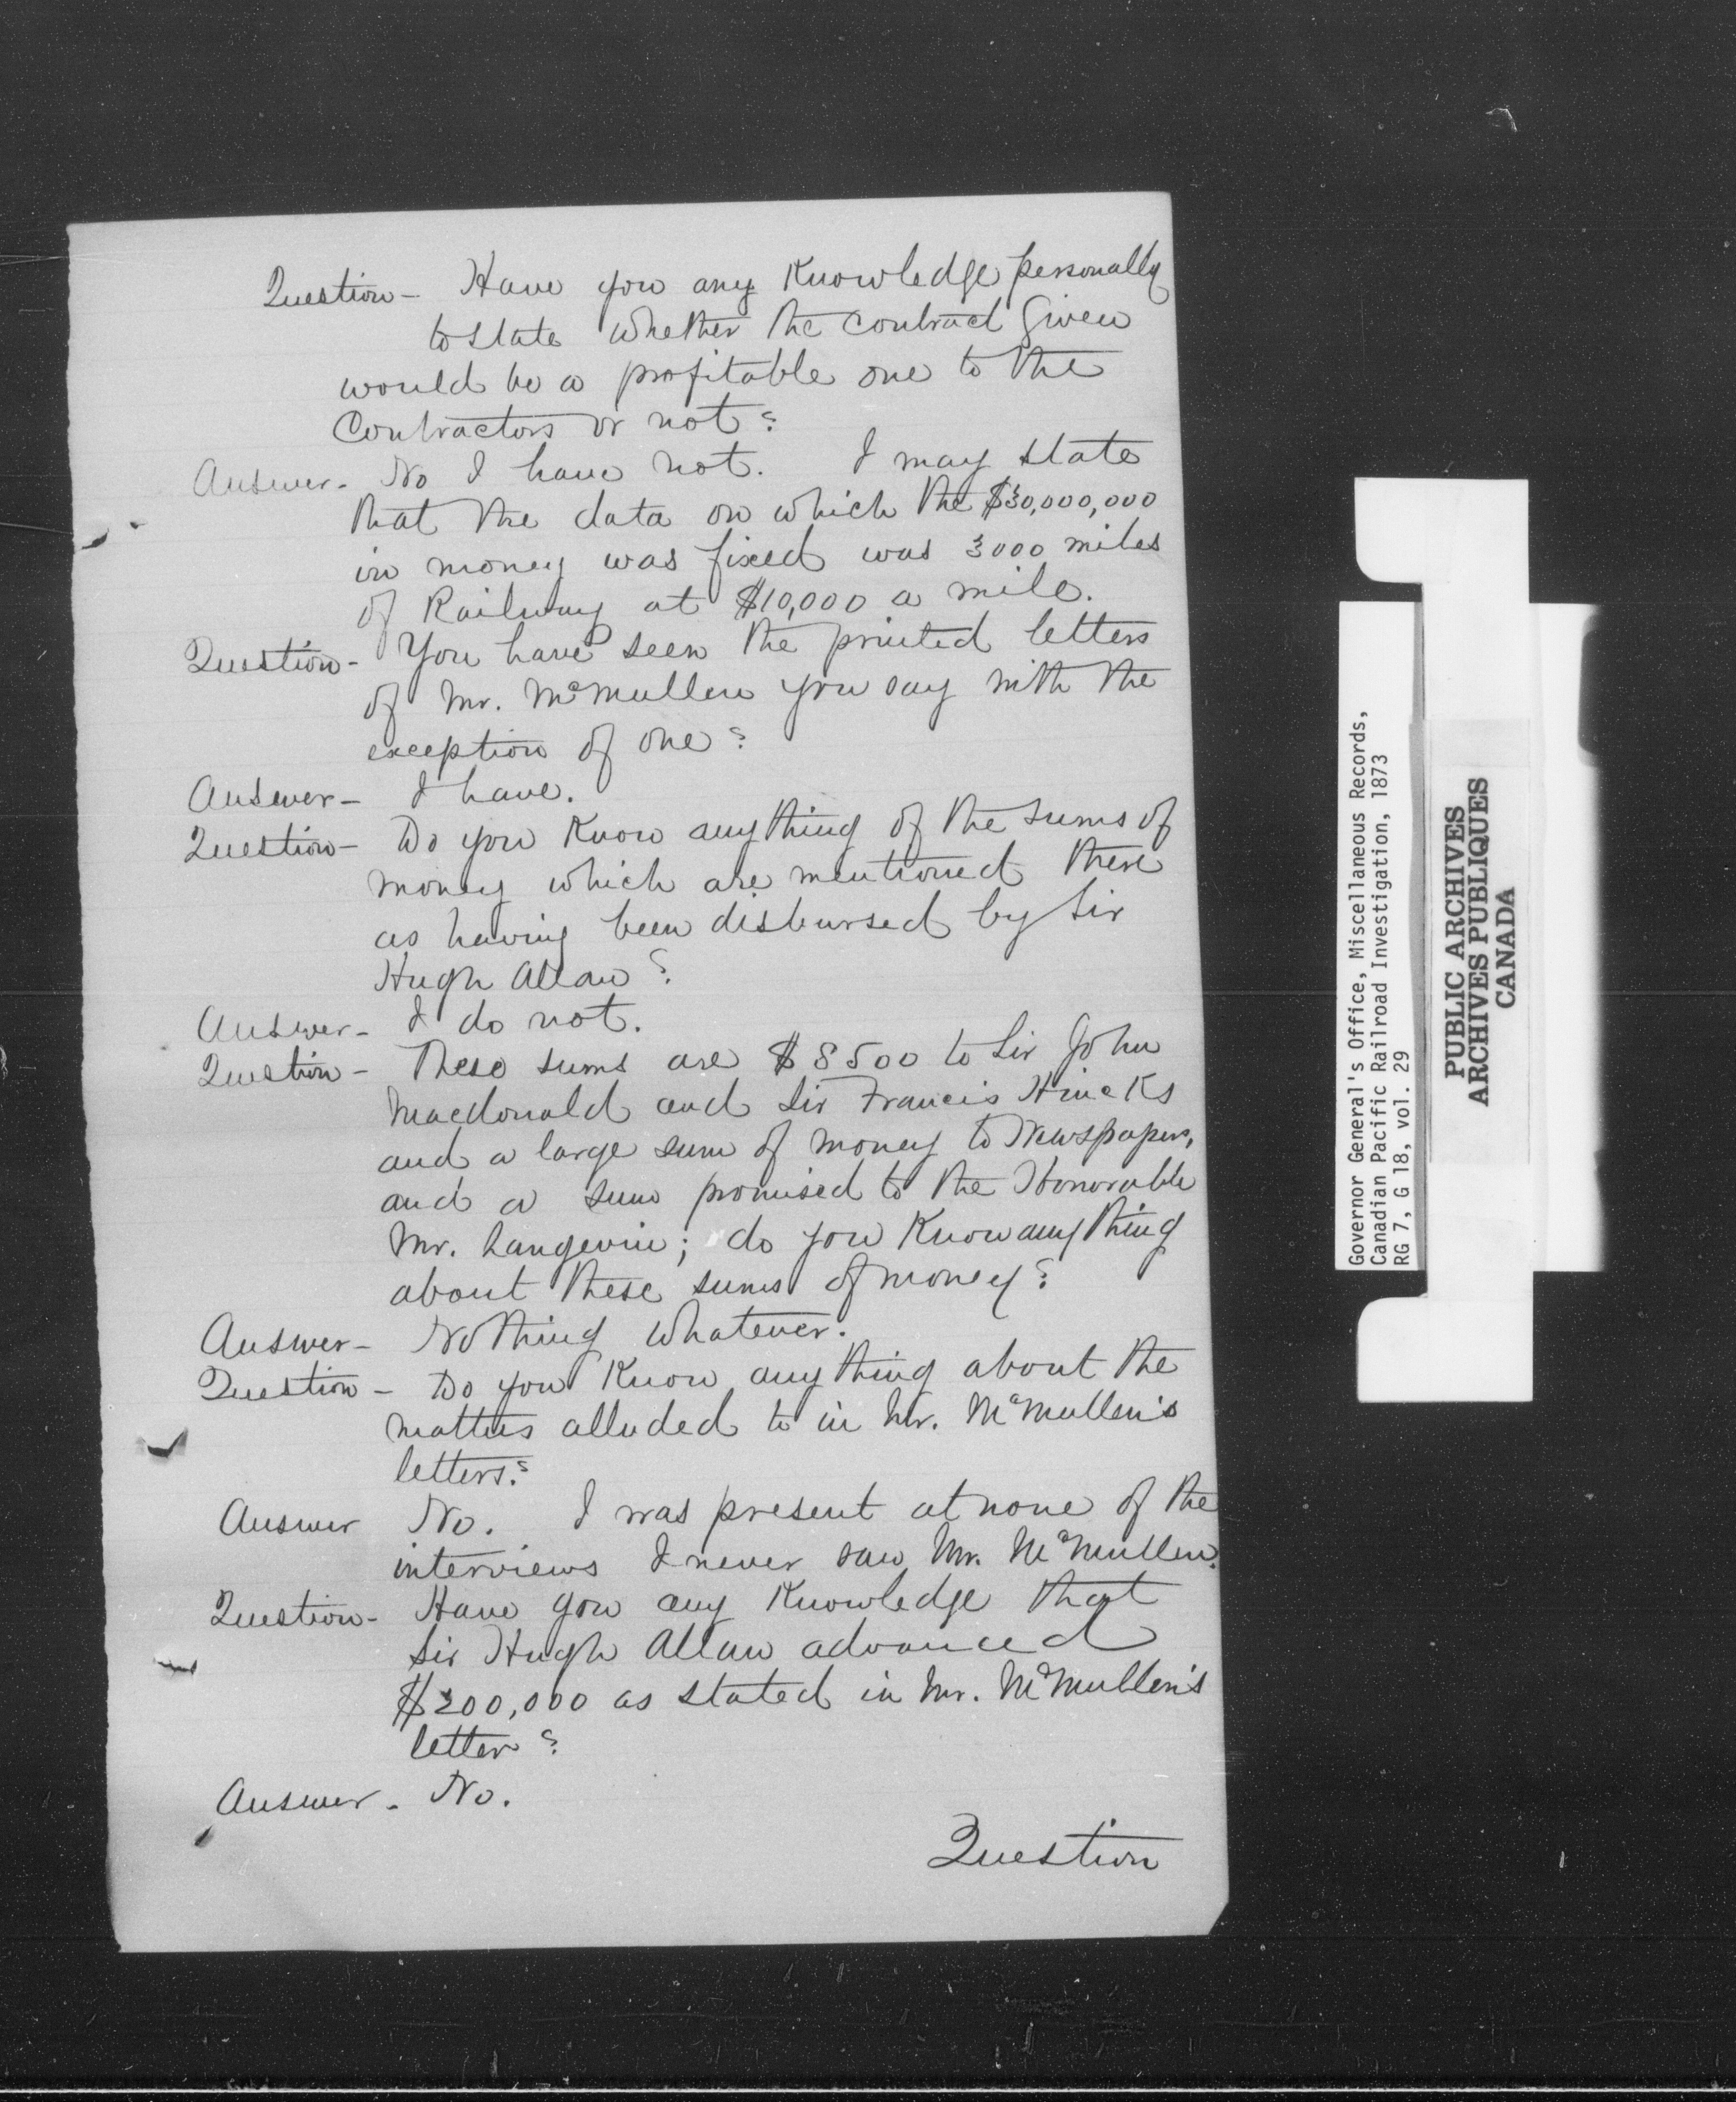 Question - Have you any Knowledge personally
to state whether the contract Given
would be a profitable one to the
Contractors or not?
Answer - No I have not. I may state
that the data on which the $30,000,000
in money was fixed was 3000 miles
of Railway at $10,000 a mile.
Question - You have seen the printed letters
of Mr. McMullen you say with the
exception of one?
Answer - I have.
Question - Do you Know anything of the sums of
money which are mentioned there
as having been disbursed by Sir
Hugh Allan?
Answer - I do not.
Question - These sums are $8500 to Sir John
Macdonald and Sir Francis Hincks
and a large sum of money to Newspapers,
and a sum promised to the Honorable
Mr. Langevin; do you Know anything
about these sums of money?
Answer - Nothing whatever.
Question - Do you Know anything about the
matters alluded to in Mr. McMullen's
letters?
Answer No. I was present at none of the
interviews I never saw Mr. McMullen.
Question - Have you any Knowledge that
Sir Hugh Allan advanced
$200,000 as stated in Mr. McMullen's
letter?
Answer - No.
Question
Governor General's Office, Miscellaneous Records,
Canadian Pacific Railroad Investigation, 1873
RG 7, G 18, vol. 29
PUBLIC ARCHIVES
ARCHIVES PUBLIQUES
CANADA